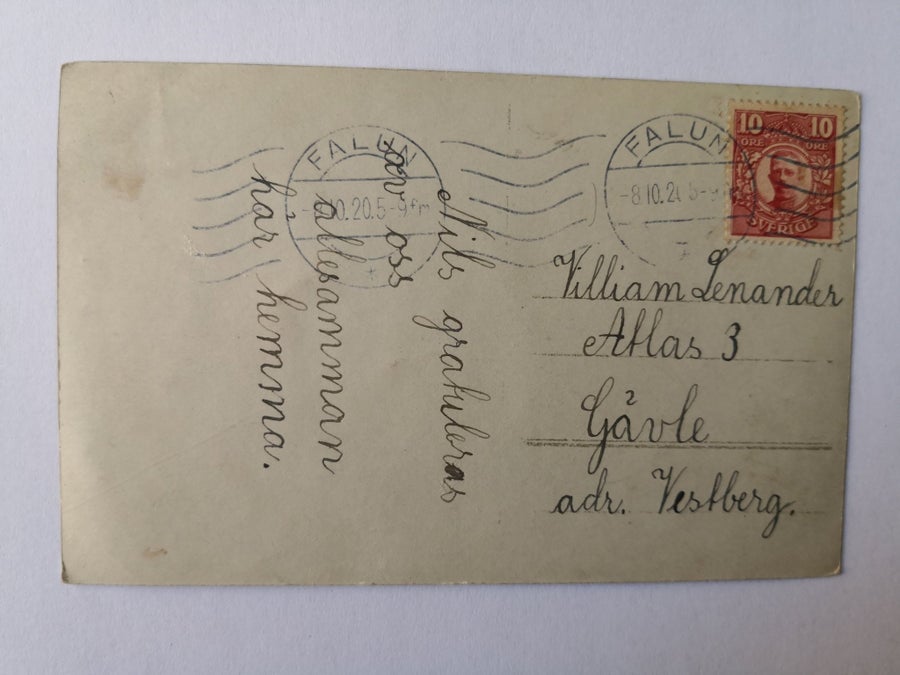 Nils gratuleras
av oss
allesamman
här hemma.
FALUN
10.20.5-9 fm
FALUN
-8.10.20 5-9
10 10
ÖRE ÖRE
SVERIGE
Villiam Lenander
Atlas 3
Gävle
adr. Vestberg.